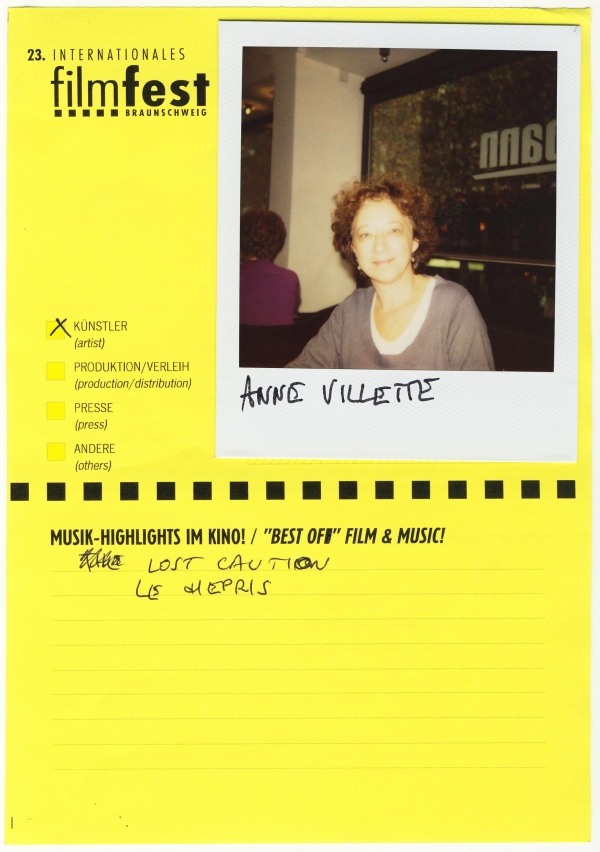 23. INTERNATIONALES
filmfest
BRAUNSCHWEIG
nnao
ANNE VILLETTE
X KÜNSTLER
(artist)
PRODUKTION/VERLEIH
(production/distribution)
PRESSE
(press)
ANDERE
(others)
MUSIK-HIGHLIGHTS IM KINO! / "BEST OF" FILM & MUSIC!
LOST CAUTION
LE MEPRIS